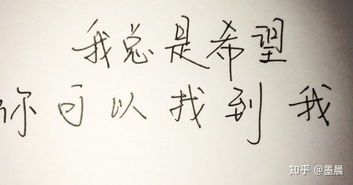 我总是希望
你可以找到我
知乎 @墨晨